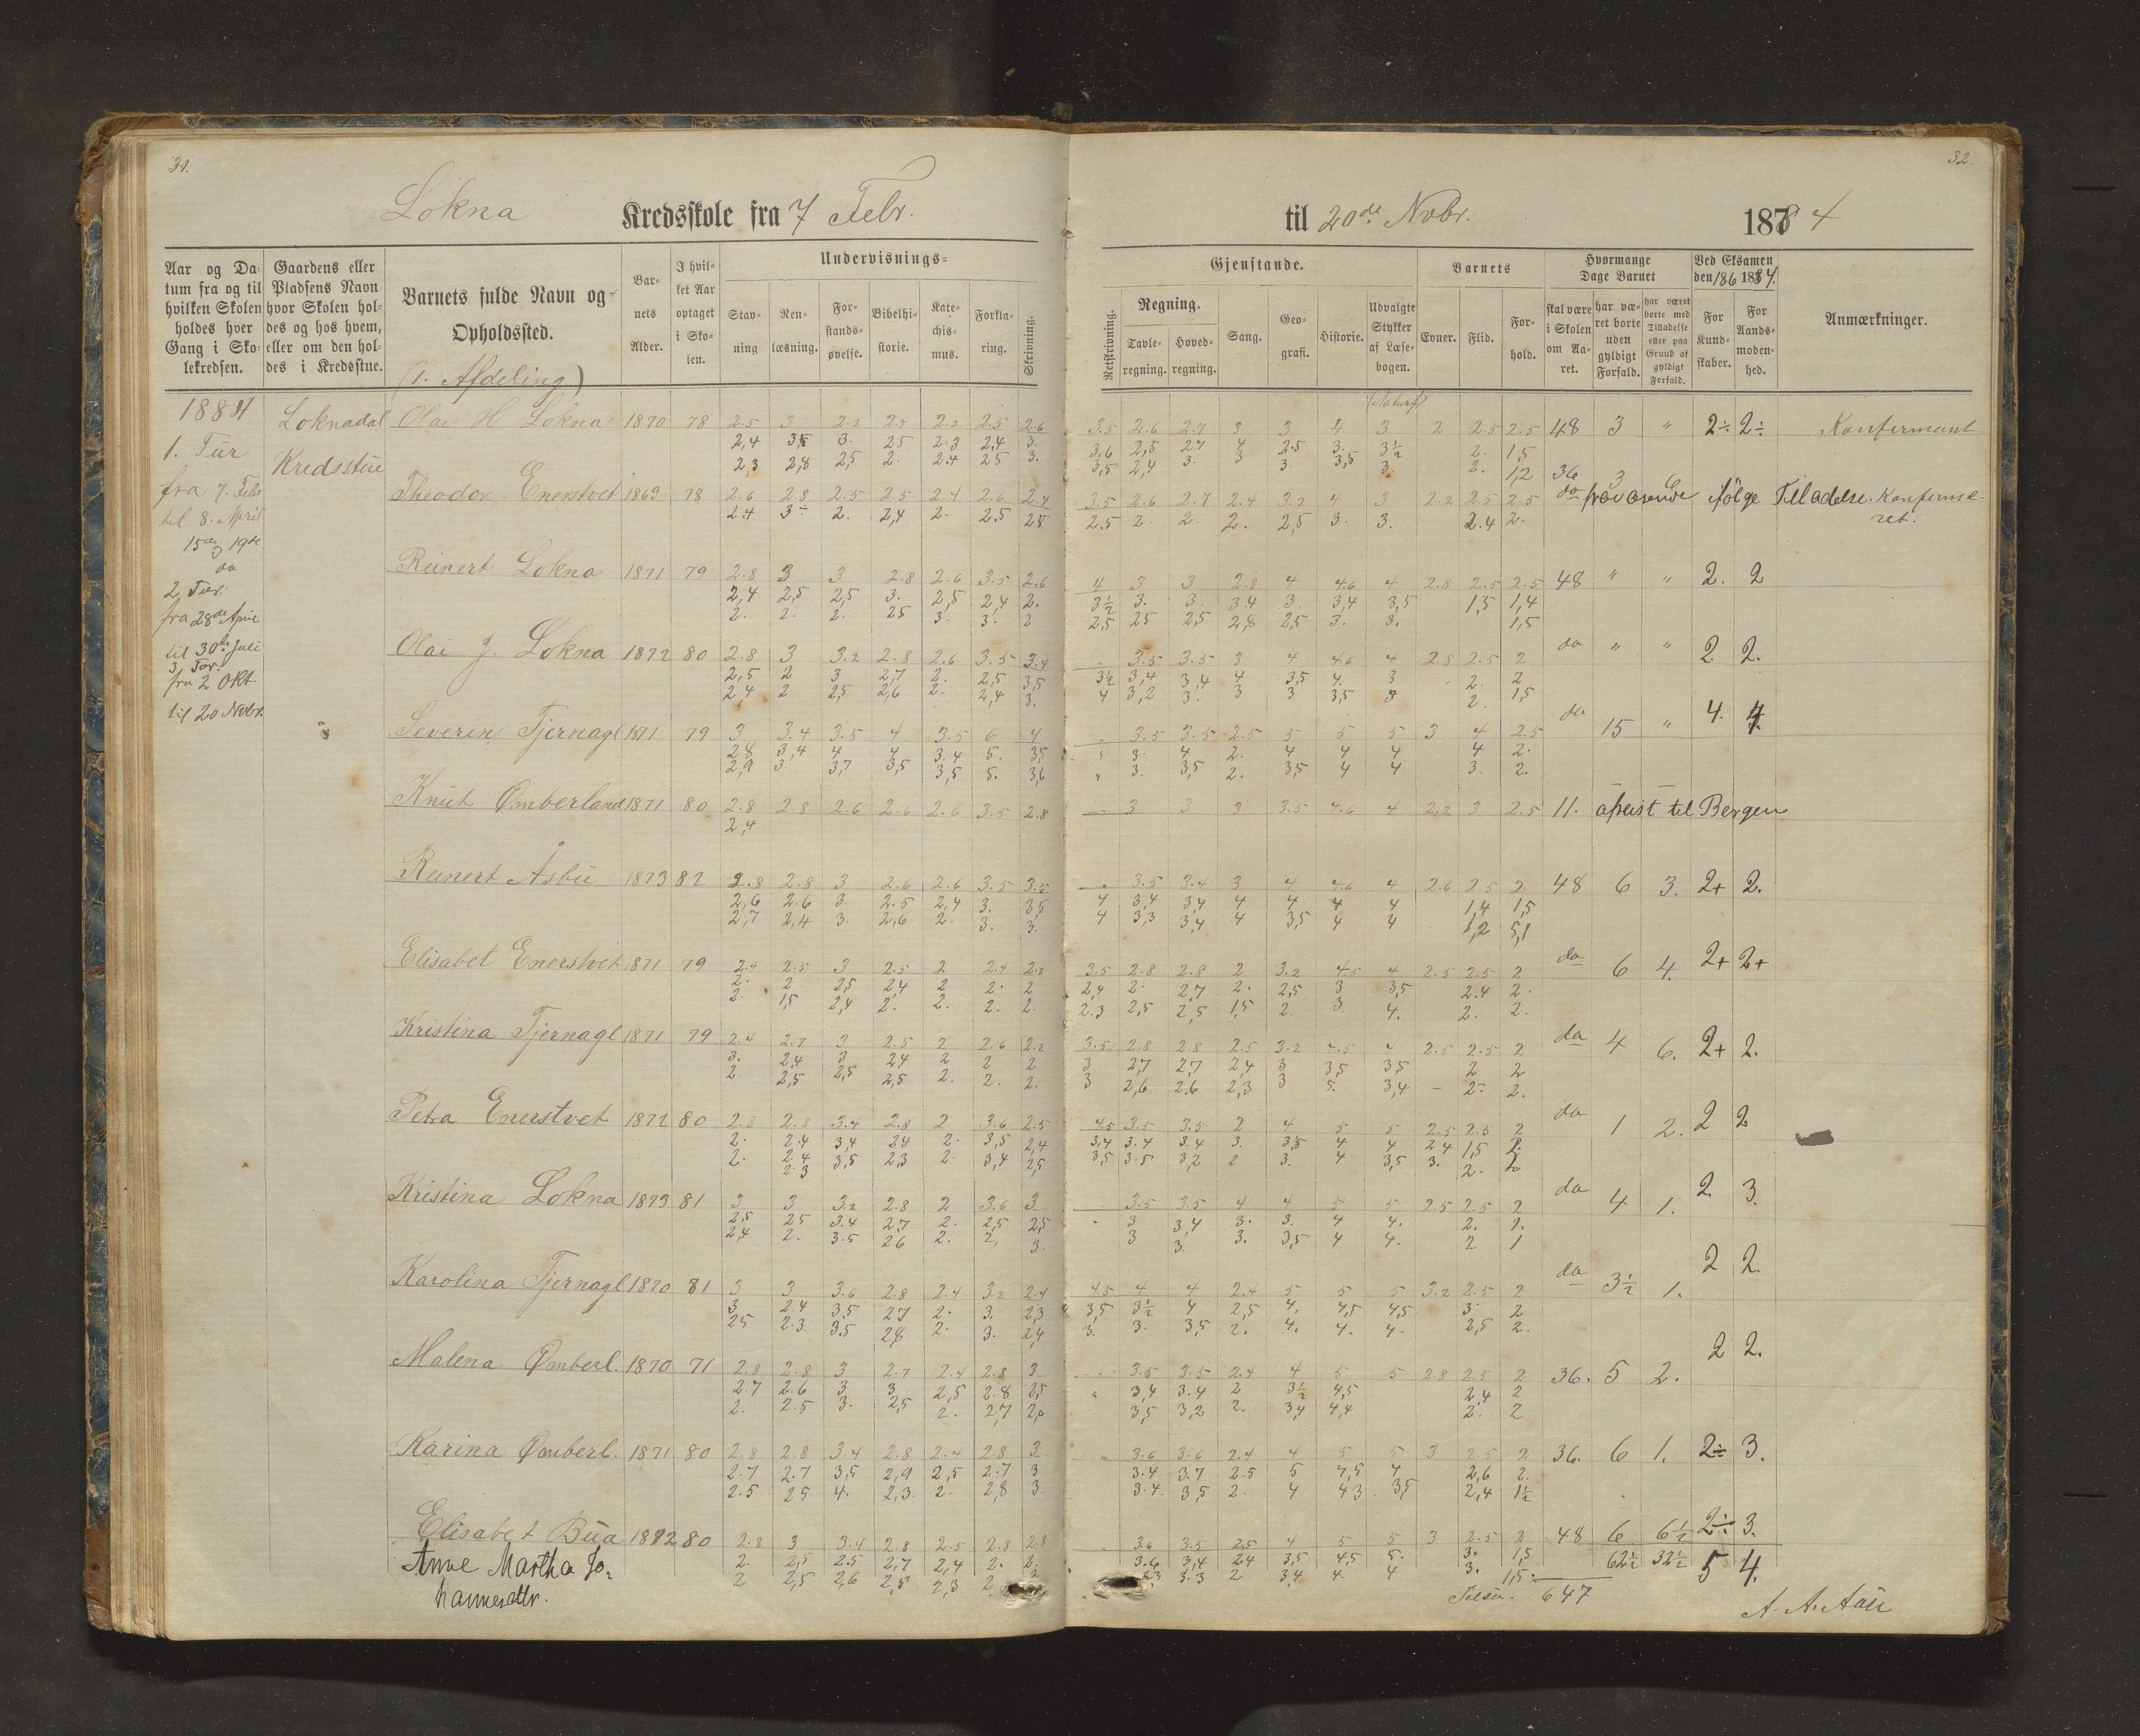 31.
Lokna Kredsskole fra 7 Febr.
Aar og Da-
tum fra og til
hvilken Skolen
holdes hver
Gang i Sko-
lekredsen.
Gaardens eller
Pladsens Navn
hvor Skolen hol-
des og hos hvem,
eller om den hol-
des i Kredsstue.
Barnets fulde Navn og
Opholdssted.
(1. Afdeling)
Bar-
nets
Alder.
I hvil-
ket Aar
optaget
i Sko-
len.
Undervisnings-
Stav-
ning
Ren-
læsning.
For-
stands-
øvelse.
Bibelhi-
storie.
Kate-
chis-
mus.
Forkla-
ring.
Skrivning.
1884
1. Tur
fra 7. Febr
til 8. April
15de og 19de
do
2, Tur.
fra 28de April
til 30te Juli
3, Tur.
fra 2 Okt.
til 20 Nvbr.
Loknadal
Kredsstue
Olai H Lokna 1870 78 2.5 3 2.2 2.4 2.2 2.5 2.6
2,4 3½ 3. 25 2.3 2,4 3.
2,3 2,8 2,5 2. 2.4 25 3.
Theodor Enerstvet 1869 78 2.6 2.8 2.5 2.5 2.4 2.6 2.4
2.4 3÷ 2. 2,4 2. 2,5 25
Reinert Lokna 1871 79 2.8 3 3 2.8 2.6 3.5 2.6
2,4 2,5 2,5 3. 2,5 2,4 2.
2. 2. 2. 25 3. 3. 2
Olai J. Lokna 1872 80 2.8 3 3.2 2.8 2.6 3.5 3.4
2,5 2 3 2,7 2. 2,5 3,5
2,4 2 2,5 2,6 2. 2,4 3.
Severin Tjernagl 1871 79 3 3.4 3.5 4 3.5 6 4
28 3,4 4 4 3.4 5. 3,5
2,9 3. 3,7 3,5 3,5 5. 3,6
Knut Ømberland 1871 80 2.8 2.8 2.6 2.6 2.6 3.5 2.8
2,4
Reinert Åsbu 1873 82 2.8 2.8 3 2.6 2.6 3.5 3.5
2,6 2.6 3. 2.5 2,4 3. 3,5
2,7 2,4 3. 2,6 2. 3. 3.
Elisabet Enerstvet 1871 79 2.4 2.5 3 2.5 2 2.4 2.2
2. 2 2,5 2,4 2 2. 2
2. 1,5 2,4 2. 2. 2. 2.
Kristina Tjernagl 1871 79 2.4 2.7 3 2.5 2 2.6 2.2
3. 2,4 3 24 2 2 2
2. 2,5 2,5 2,5 2. 2. 2.
Petra Enerstvet 1872 80 2.8 2.8 3.4 2.8 2 3.6 2.5
2. 2.4 3,4 24 2. 3,5 2,4
2. 2.4 3,5 2,3 2. 3,4 2,5
2.3
Kristina Lokna 1873 81 3 3 3.2 2.8 2 3.6 3
2,5 25 3.4 2,7 2. 2,5 2,5
2,4 2. 3.5 26 2. 2, 3.
Karolina Tjernagl 1870 81 3 3 3.6 2.8 2.4 3.2 2.4
3 2.4 3.5 27 2. 3. 2,3
25 2.3. 3.5 28 2. 3. 2,4
Malena Ømberl. 1870 71 2.8 2.8 3 2.7 2.4 2.8 3
2.7 2.6 3 3 2,5 2.8 2,5
2. 2.5 3. 2,5 2. 2,7
Karina Ømberl. 1871 80 2.8 2.8 3.4 2.8 2.4 2.8 3
2.7 2.7 3,5 2,9 2,5 2.7 3
2.5 25 4. 2,3. 2. 2,8 3.
Elisabet Bua 1872 80 2.8 3 3.4 2.8 2.5 2.8 2.8
Anne Martha Jo- 2. 2,5 2.5 2,7 2,4 2. 2.
hannesdtr. 2 2,5 2,6 2,5 2,3 2.
32.
til 20de Nvbr. 1884
Gjenstande.
Retskrivning.
Regning.
Tavle-
regning.
Hoved-
regning.
Sang.
Geo-
grafi.
Historie.
Udvalgte
Stykker
af Læse-
bogen.
(Naturf)
Barnets
Evner.
Flid.
For-
hold.
Hvormange
Dage Barnet
skal være
i Skolen
om Aa-
ret.
har væ-
ret borte
uden
gyldigt
Forfald.
har været
borte med
Tilladelse
eller paa
Grund af
gyldigt
Forfald.
Ved Eksamen
den 18/6 1884.
For
Kund-
skaber.
For
Aands-
moden-
hed.
Anmærkninger.
3.5 2.6 2.7 3 3 4 3 2 2.5 2.5 48 3 " 2÷ 2÷ Konfirmant
3,6 2,5 2.7 4 2.5 3. 3½ 2. 1,5
3,5 2,4 3. 3 3. 3,5 3. 2. 1,2 36 3 6
3.5 2.6 2.7 2.4 3.2 4 3 2.2 2.5 2.5 do fraværende ifølge Tilladelse. Konfirme-
ret.
2.5 2. 2. 2. 2,5 3. 3. 2.4 2.
4 3 3 2.8 4 4.6 4 2.8 2.5 2.5 48 " " 2. 2
3½ 3. 3. 3.4 3. 3,4 3,5 1,5 1,4
2,5 25 2,5 2,8 2,5 3. 3. 1,5
" 3.5 3.5 3 4 4.6 4 2.8 2.5 2 do " " 2. 2.
3½ 3,4 3,4 4 3,5 4. 3 2. 2
4 3,2 3. 3 3 3,5 2. 1,5
" 3.5 3.5 2.5 5 5 5 3 4 2.5 do 15 " 4. 4.
" 3. 4 2. 4 4 4 4 2.
" 3. 3,5 2. 3,5 4 4 3. 2.
" 3 3 3 3.5 4.6 4 2.2 3 2.5 11. afreist til Bergen
" 3.5 3.4 3 4 4.6 4 2.6 2.5 2 48 6 3. 2+ 2.
4 3,4 3,4 4 4 4 4 1,4 1,5
4 3,3 3,4 4 3,5 4 4 1,2 5,1
3.5 2.8 2.8 2 3.2 4.5 4 2.5 2.5 2 do 6 4. 2+ 2+
2,4 2. 2,7 2. 2,5 3 3,5 2.4 2.
2.3 2,5 2,5 1,5 2. 3. 4. 2. 2.
3.5 2.8 2.8 2.5 3.2 4.5 4 2.5 2.5 2 do 4 6. 2+ 2.
3 2,7 2,7 2,4 3 3,5 3,5 2 2
3 2,6 2.6 2,3 3 5. 3,4 – 2. 2.
4.5 3.5 3.5 2 4 5 5 2.5 2.5 2 do 1 2. 2 2
3,4 3.4 3.4 3. 3,5 4 4 2.4 1,5
3,5 3.5 3,2 2 3. 4 3,5 3. 2.
" 3.5 3.5 4 4 5 5 2.5 2.5 2 do 4 1. 2. 3.
" 3 3,4 3. 3. 4 4. 2. 1.
3 3. 3. 3,5 4 4. 2 1
4.5 4 4 2.4 5 5 5 3.2 2.5 2 do 3½ 1. 2 2.
3,5 3½ 4 2,5 4. 4,5 4,5 3. 2
3. 3. 3,5 2. 4. 4. 4. 2,5 2.
" 3.5 3.5 2.4 4 5 5 2.8 2.5 2 36. 5 2. 2 2.
" 3,4 3.4 2 3½ 4,5 2,4 2
3,5 3,2 2. 3,4 4,4 2. 2
" 3.6 3.6 2.4 4 5 5 3 2.5 2 36. 6 1. 2÷ 3.
3.4 3.7 2.5 5 4,5 4 2,6 2.
3.4 3,5 2. 4 43. 3,5 2,4 1½
" 3.6 3.5 2,5 4 5 5 3 2.5 2 48 6 6½ 2÷ 3.
3.6 3,4 2.4 3,5 4,5 5. 3. 1,5 62½ 32½ 5 4.
3.3 2 3,4 4. 4 3. 1,5.
647
A. A. Aasu